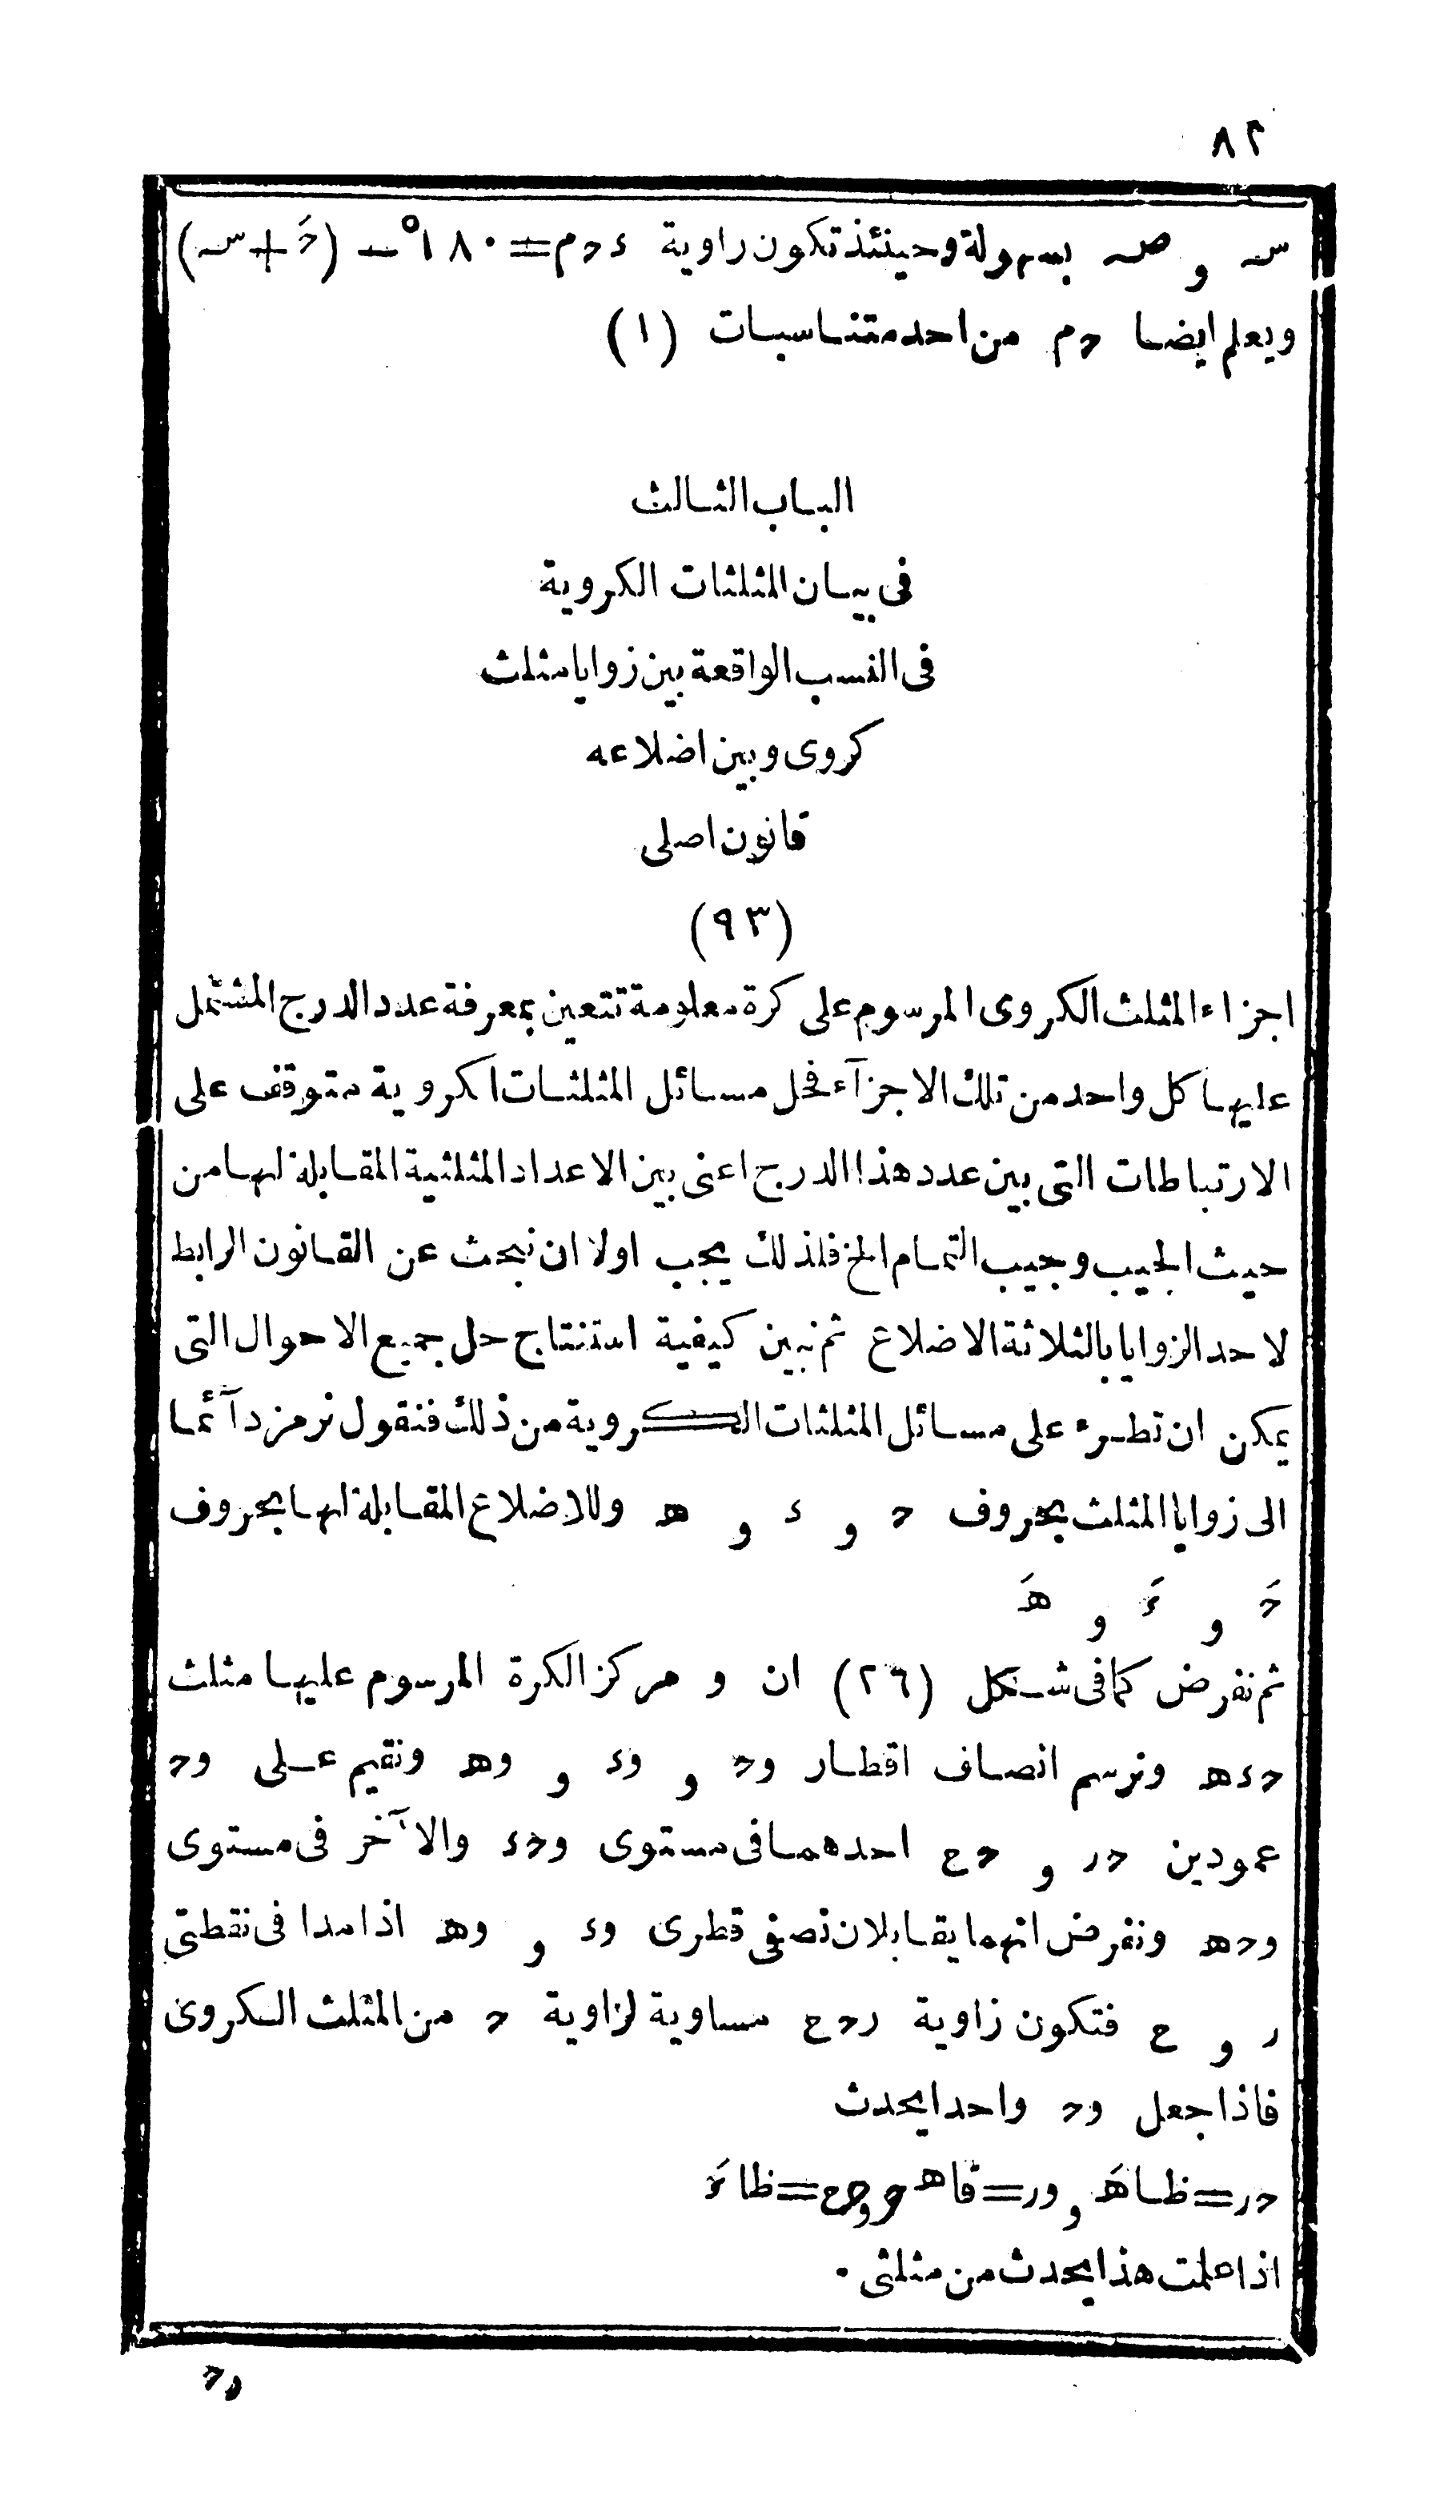 ٨٢
س و ص بسهولة وحينئذ تكون راوية ءحم=١٨٠°-(حَ+س)
ويعلم ايضا حم من احد متناسبات (١)
الباب الثالث
فى بيان المثلثات الكروية
فى النسب الواقعة بين زوايا مثلث
كروى وبين اضلاعه
قانون اصلى
(٩٣)
اجزاء المثلث الكروى المرسوم على كرة معلومة تتعين بمعرفة عدد الدرج المشتمل
عليها كل واحد من تلك الاجزآء فحل مسائل المثلثات اكروية متوقف على
الارتباطات التى بين عدد هذا الدرج اعنى بين الاعداد المثلثية المقابلة لها من
حيث الجيب وجيب التمام الخ فلذلك يجب اولا ان نبحث عن القانون الرابط
لاحد الزوايا بالثلاثة الاضلاع ثم نبين كيفية استنتاج حل جميع الاحوال التى
يمكن ان تطرء على مسائل المثلثات الكروية من ذلك فنقول نرمز دآئما
الى زوايا المثلث بحروف ح و ء و ه وللاضلاع المقابلة لها بحروف
حَ و ءَ و هَ
ثم نفرض كما فى شكل (٢٦) ان و مركز الكرة المرسوم عليها مثلث
حءه ونرسم انصاف اقطار وح و وء و وه ونقيم على وح
عمودين حر و حع احدهما فى مستوى وحء والآخر فى مستوى
وحه ونفرض انهما يقابلان نصفى قطرى وء و وه اذا مدا فى نقطتى
ر و ع فتكون زاوية رحع مساوية لزاوية ح من المثلث الكروى
فاذا جعل وح واحدا يحدث
حر=ظاهَ و ور=قاه و حع=ظاءَ
اذا علمت هذا يحدث من مثلثى.
رح